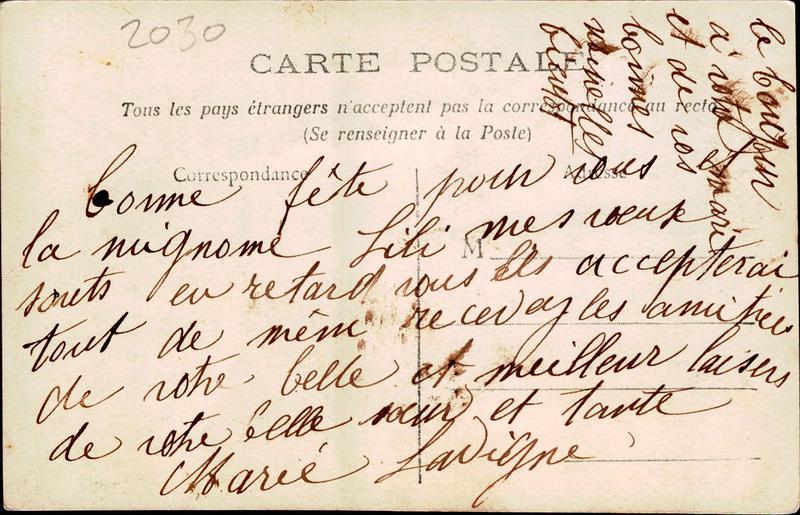 2030
CARTE POSTALE
Tous les pays étrangers n'acceptent pas la correspondance au recto
(Se renseigner à la Poste)
Correspondance
Adresse
M
bonne fête pour vous
la mignome Lili mes vœux
souts en retard vous les accepterai
tout de même recevez les amities
de votre belle et meilleur baisers
de votre belle sœur et tante
Marie Lavigne
le bonjour
a votre marie
et de vos
bonnes